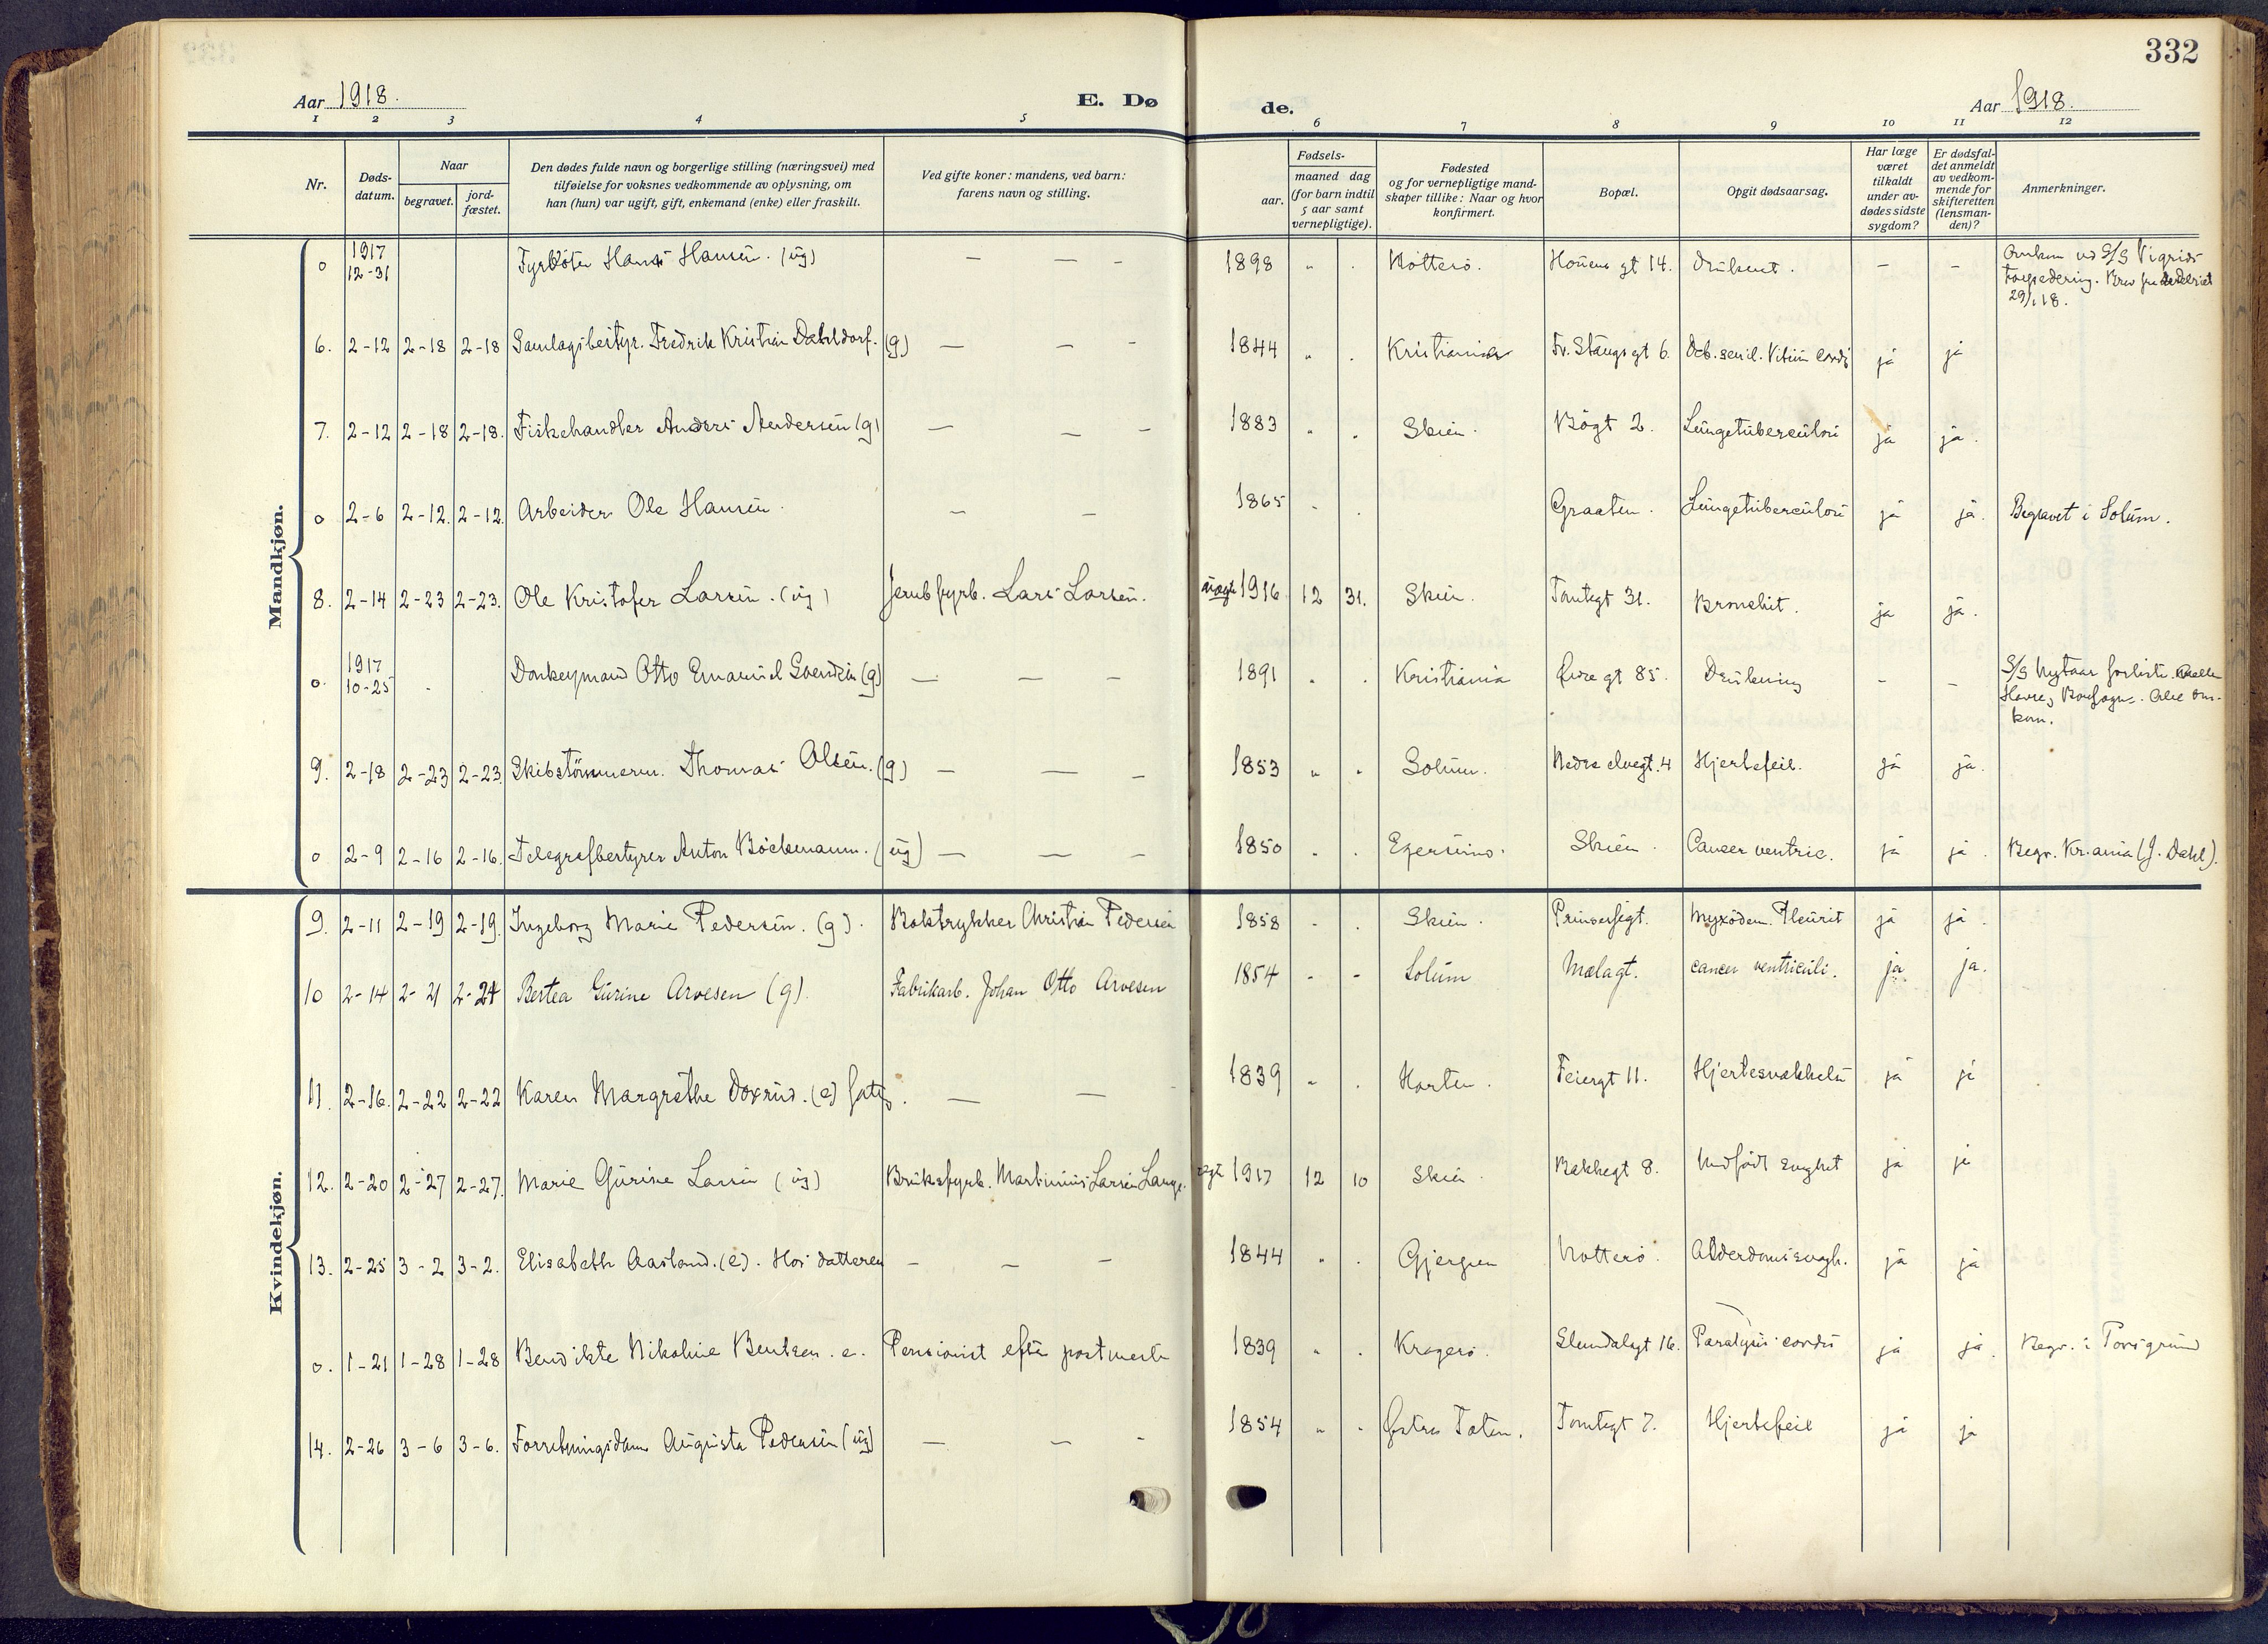 332
Aar 1918. E. Dø de. Aar 1918.
1 2 3 4 5 6 7 8 9 10 11 12
Nr. Døds-datum. Naar begravet. jord-fæstet. Den dødes fulde navn og borgerlige stilling (næringsvei) med tilføielse for voksnes vedkommende av oplysning, om han (hun) var ugift, gift, enkemand (enke) eller fraskilt. Ved gifte koner: mandens, ved barn: farens navn og stilling. Fødsels- aar. maaned dag (for barn indtil 5 aar samt vernepligtige). Fødested og for vernepligtige mand-skaper tillike: Naar og hvor konfirmert. Bopæl. Opgit dødsaarsag. Har læge været tilkaldt under av-dødes sidste sygdom? Er dødsfal-det anmeldt av vedkom-mende for skifteretten (lensman-den)? Anmerkninger.
Mandkjøn.
o 1917 12-31 Fyrbøter Hans Hansen. (ug) — — — 1898 " . Nötterö. Houens gt 14. druknet. – – Omkom ved S/S Vigrids Torpedering. 29/1 18.
6. 2-12 2-18 2-18 Samlagsbestyr. Fredrik Kristian Dahldorf. (g) — — - 1844 " . Kristiania Fr. Stangs gt 6. Deb. senil. Vitium cordis ja ja
7. 2-12 2-18 2-18. Fiskehandler Anders Andersen (g) — — - 1883 " . Skien. Bögt 2. Lungetuberculose ja ja.
o 2-6 2-12. 2-12. Arbeider Ole Hansen. — — 1865 - . Graaten. Lungetuberculose ja ja. Begravet i Solum.
8. 2-14 2-23 2-23. Ole Kristofer Larsen. (ug) Jernbfyrb. Lars Larsen. 1916 12 31. Skien. Tomtegt 31. Bronchit. ja ja.
o. 1917 10-25 . Donkeymand Otto Emanuel Svendsen (g) — — — 1891 " . Kristiania Øvre gt 85. Drukning – – S/S Nytaar forliste. Havre, Boulogne. Alle om-kom.
9. 2-18 2-23 2-23. Skibstömmerm. Thomas Olsen. (g) — — - 1853 " . Solum. Nedre elvegt. 4 Hjertefeil. ja ja.
o 2-9 2-16 2-16. Telegrafbestyrer Anton Böckmann. (ug) — — - 1850 . . Egersund. Skien. Cancer ventric. ja ja. Begr. Kr.ania (J. Dahl).
Kvindekjøn.
9. 2-11 2-19 2-19. Ingeborg Marie Pedersen. (g). Boktrykker Christian Pedersen 1858 - . Skien. Prinsensgt. Myxödem. Pleurit ja ja.
10 2-14 2-21 2-21 Bertea Gurine Arvesen (g). Fabrikarb. Johan Otto Arvesen 1854 - - Solum Mælagt. cancer ventriculi. ja ja.
11. 2-16. 2-22 2-22 Karen Margrethe Doxrud. (e) — — 1839 " . Horten. Feiergt 11. Hjertesvakhet ja ja
12. 2-20 2-27 2-27. Marie Gurine Larsen (ug) Bruksfyrb. Martinius Larsen Lange. 1917 12 10 Skien. Bakkegt 8. Medfødt svaghet ja ja
13. 2-25 3-2 3-2. Elisabeth Aasland. (e). Hos datteren – – – 1844 " . Gjerpen Notterö. Alderdomssvagh. ja ja
o. 1-21 1-28 1-28 Bendikte Nikoline Bentsen. e. Pensionist efter postmester 1839 " . Kragerö. Slemdalsgt 16. Paralysis cordis ja ja. Begr. i Porsgrund
14. 2-26 3-6 3-6. Forretningsdame Augusta Pedersen (ug) — — - 1854 " . Østre Toten. Tomtegt 7. Hjertefeil ja ja